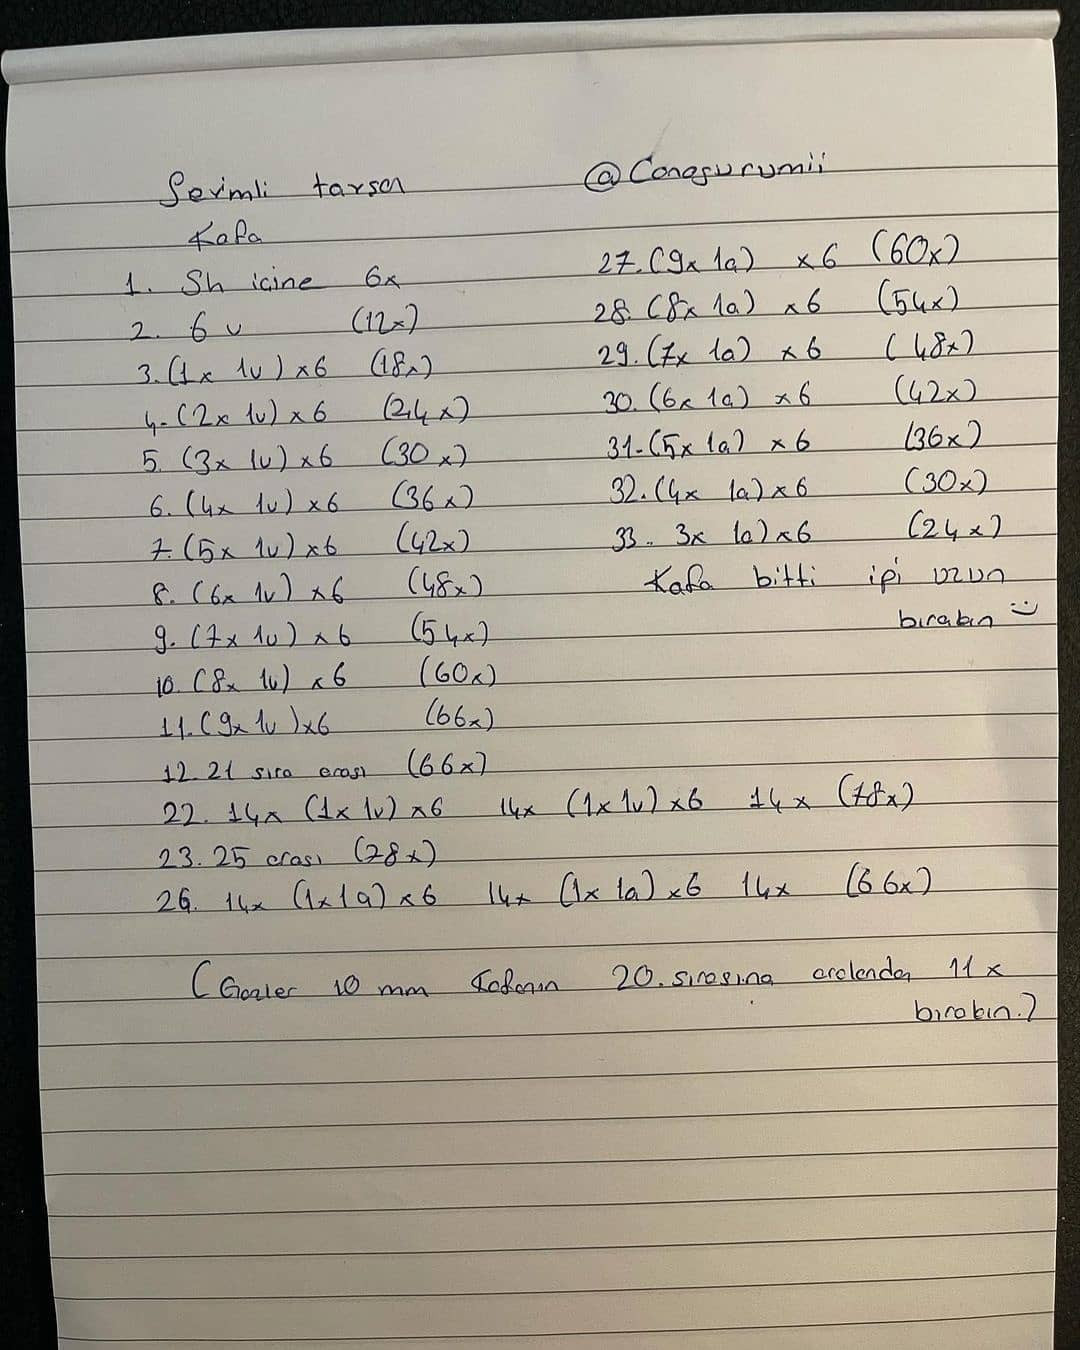 Sevimli tavşan
@Canagurumii
Kafa
1. Sh içine 6x
2. 6 v (12x)
3. (1x 1v) x6 (18x)
4- (2x 1v) x6 (24x)
5. (3x 1v) x6 (30x)
6. (4x 1v) x6 (36x)
7. (5x 1v) x6 (42x)
8. (6x 1v) x6 (48x)
9. (7x 1v) x6 (54x)
10. (8x 1v) x6 (60x)
11. (9x 1v) x6 (66x)
12. 21 sıra arası (66x)
22. 14x (1x 1v) x6 14x (1x 1v) x6 14x (78x)
23. 25 arası (78x)
26. 14x (1x 1a) x6 14x (1x 1a) x6 14x (66x)
27. (9x 1a) x6 (60x)
28. (8x 1a) x6 (54x)
29. (7x 1a) x6 (48x)
30. (6x 1a) x6 (42x)
31- (5x 1a) x6 (36x)
32. (4x 1a) x6 (30x)
33. 3x 1a) x6 (24x)
Kafa bitti ipi uzun
bırakın :)
(Gözler 10 mm Kafanın 20. sırasına aralarından 11 x
bırakın.)